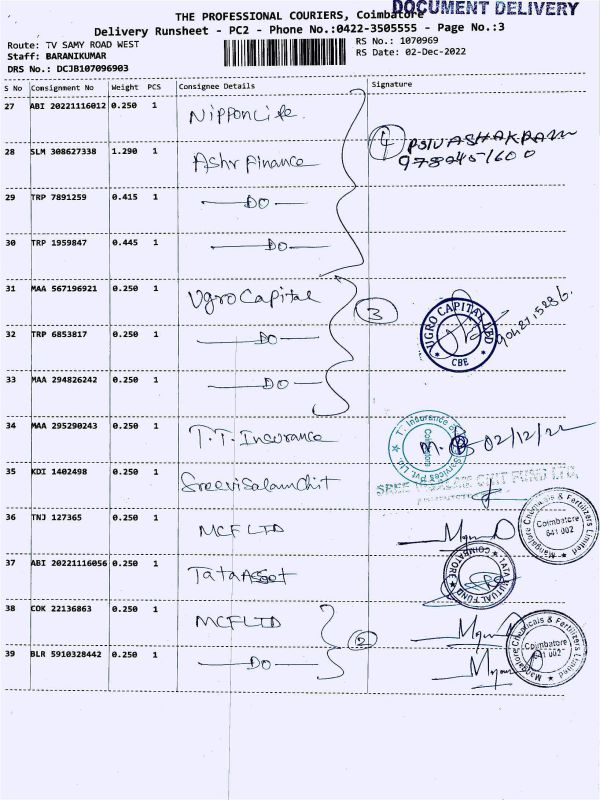 DOCUMENT DELIVERY
THE PROFESSIONAL COURIERS, Coimbatore
Delivery Runsheet - PC2 - Phone No.:0422-3505555 - Page No.:3
Route: TV SAMY ROAD WEST
RS No.: 1070969
Staff: BARANIKUMAR
RS Date: 02-Dec-2022
DRS No.: DCJB107096903
S No Consignment No Weight PCS Consignee Details Signature
27 ABI 20221116012 0.250 1 Nippon Life
28 SLM 308627338 1.290 1 Ashv Finance
4
29 TRP 7891259 0.415 1 DO
30 TRP 1959847 0.445 1 DO
31 MAA 567196921 0.250 1 Ugro Capital
3
UGRO CAPITAL LTD
CBE
32 TRP 6853817 0.250 1 DO
33 MAA 294826242 0.250 1 DO
34 MAA 295290243 0.250 1 T.T. Insurance
02/12/22
35 KDI 1402498 0.250 1 Sreevisalamchit
SREE VISALAM CHIT FUND LTD.
36 TNJ 127365 0.250 1 MCF LTD
Mangalore Chemicals & Fertilizers Limited
Coimbatore
641 002
37 ABI 20221116056 0.250 1 Tata Asset
TATA MUTUAL FUND
COIMBATORE
38 COK 22136863 0.250 1 MCF LTD
Mangalore Chemicals & Fertilizers Limited
Coimbatore
641 002
39 BLR 5910328442 0.250 1 DO